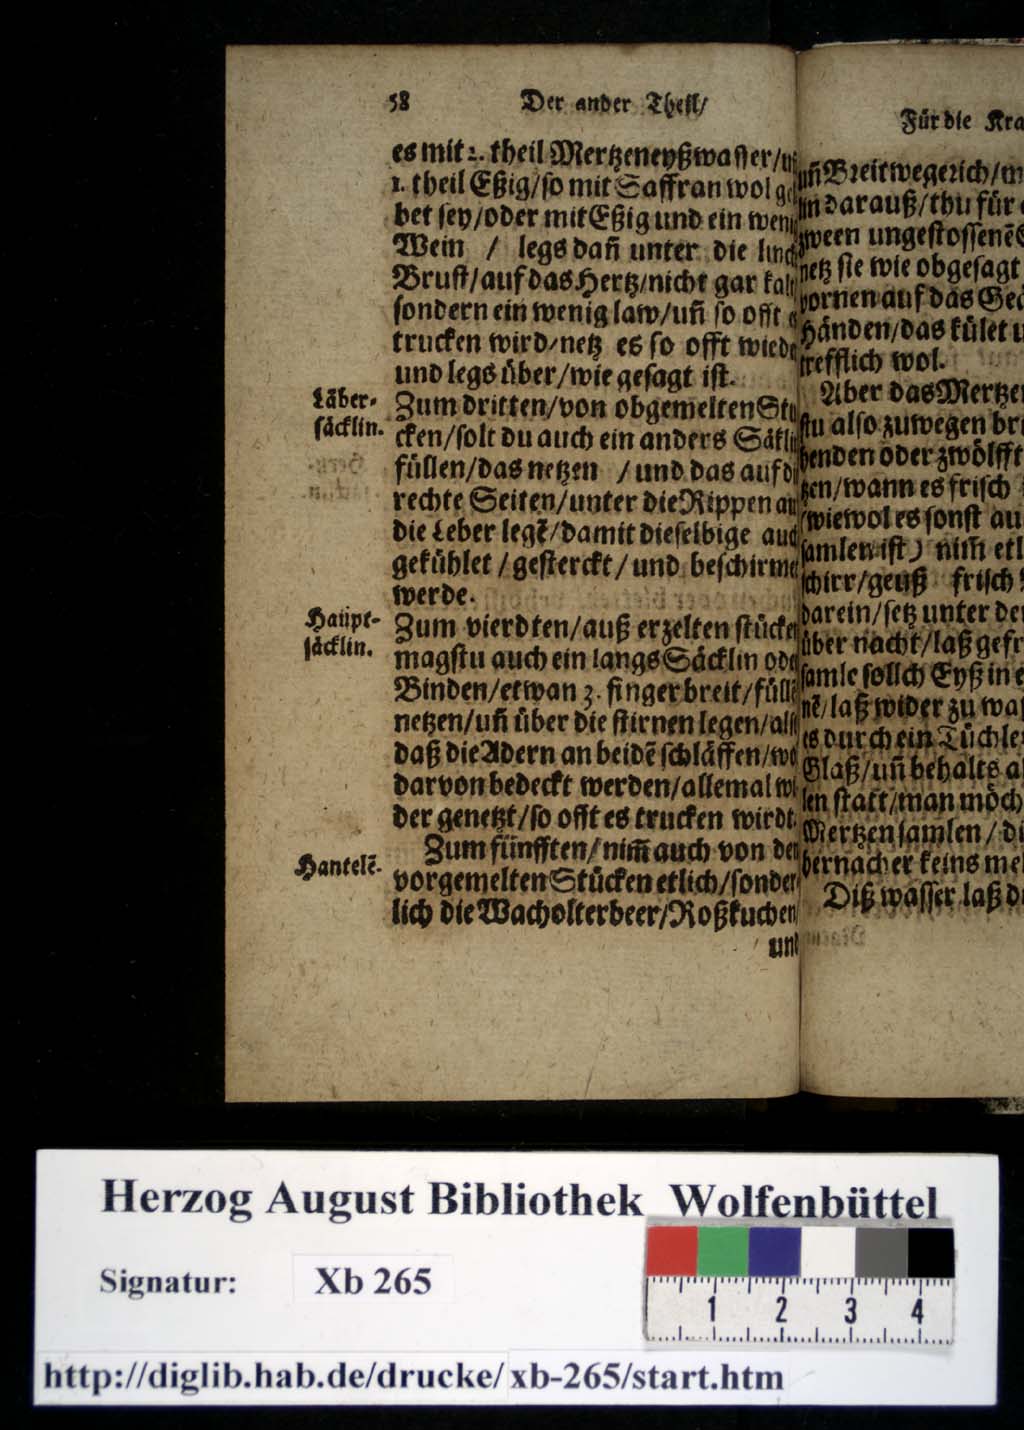 58 Der ander Theil/
es mit 2. theil Mertzeneyßwasser/
1. theil Eßig/so mit Saffran wol
bet sey/oder mit Eßig und ein
Wein / legs dañ unter die
Brust/auf das Hertz/nicht gar
sondern ein wenig law/uñ so offt
trucken wird/netz es so offt
und legs über/wie gesagt ist.
Läber-
säcklin.
Zum dritten/von obgemelten
cken/solt du auch ein anders
füllen/das netzen / und das auf
rechte Seiten/unter die Rippen
die Leber legẽ/damit dieselbige
gekühlet / gesterckt / und
werde.
Haupt-
säcklin.
Zum vierdten/auß erzelten
magstu auch ein langs Säcklin
Binden/etwan 3. finger breit/
netzen/uñ über die stirnen legen/
daß die Adern an beidẽ schläffen/
darvon bedeckt werden/allemal
der genetzt/so offt es trucken wirdt.
Hantelẽ.
Zum fünfften/nim̃ auch von
vorgemelten Stücken etlich/sonder
lich die Wacholterbeer/Roßkuchen
Für die
uñ Breitwegerich/
darauß/thu für
zween ungestossenẽ
netz sie wie obgesagt
vornen auf das
Händen/das kület
trefflich wol.
Aber das
stu also zuwegen
oder zwölfft
wann es frisch
wiewol es sonst
samlen ist) nim̃
schirr/geuß frisch
darein/setz unter
über nacht/laß
samle sollch Eyß in
nẽ/laß wider zu
es durch ein
Glaß/uñ behalts
len statt/man
Mertzen samlen /
hernach er keins
Diß wasser laß
Herzog August Bibliothek Wolfenbüttel
Signatur: Xb 265
1 2 3 4
http://diglib.hab.de/drucke/xb-265/start.htm